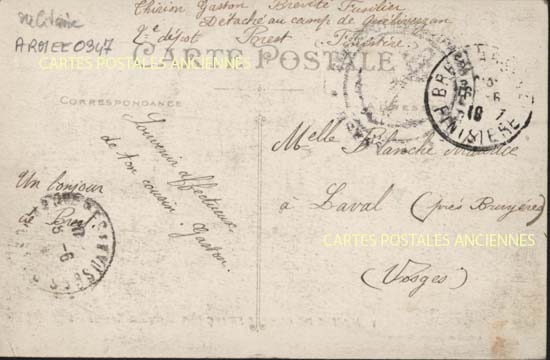 militaire
ARMEE0347
Thirion Gaston Breveté Fusilier
Détaché au camp de
2e dépôt Brest Finistère
CARTE POSTALE
CARTES POSTALES ANCIENNES
CORRESPONDANCE
BREST
FINISTERE
Souvenir affectueux
de ton cousin Gaston.
Un bonjour
de Brest
Melle Blanche
à Laval (près Bruyères)
CARTES POSTALES ANCIENNES
(Vosges)
BRUYERES
VOSGES